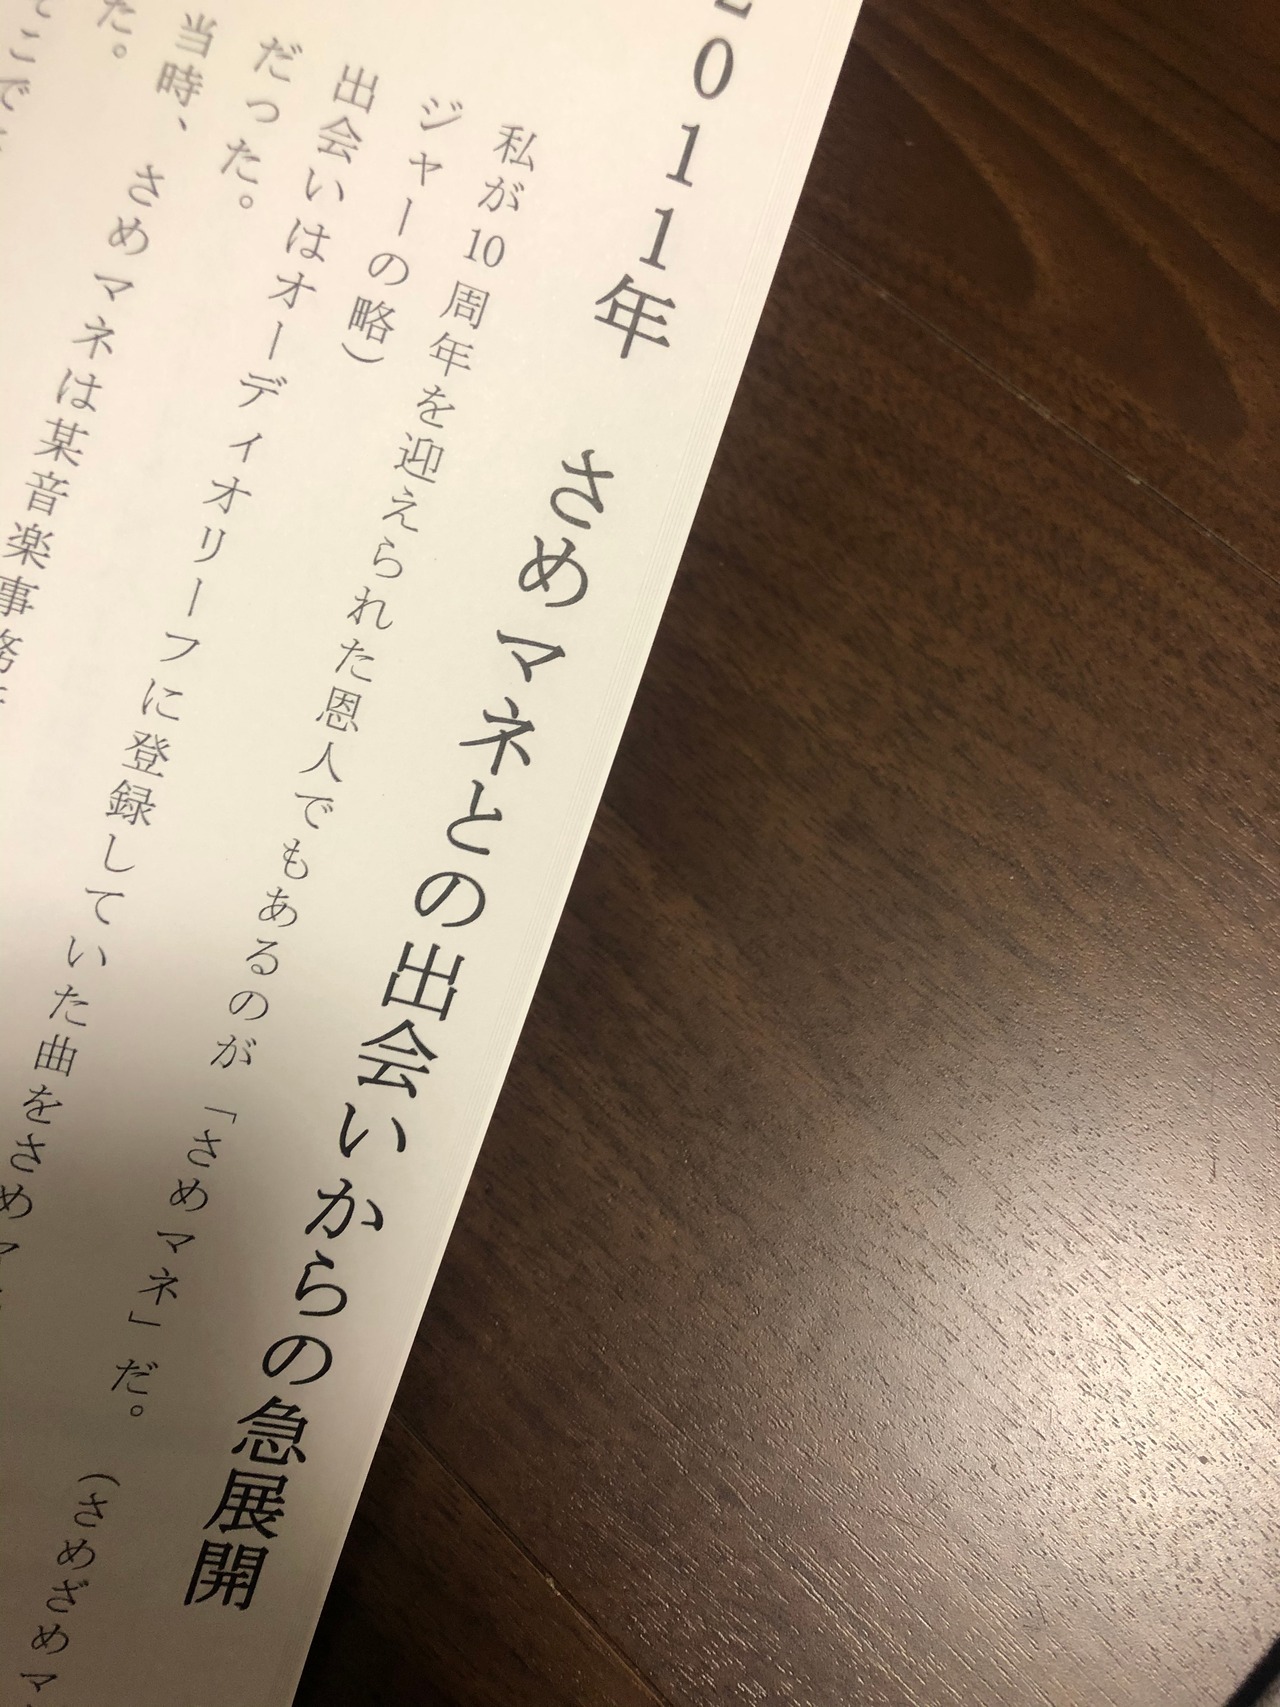 2011年 さめマネとの出会いからの急展開
私が10周年を迎えられた恩人でもあるのが「さめマネ」だ。(さめざめマ
ジャーの略)
出会いはオーディオリーフに登録していた曲をさめマ
だった。
当時、さめマネは某音楽事務
た。